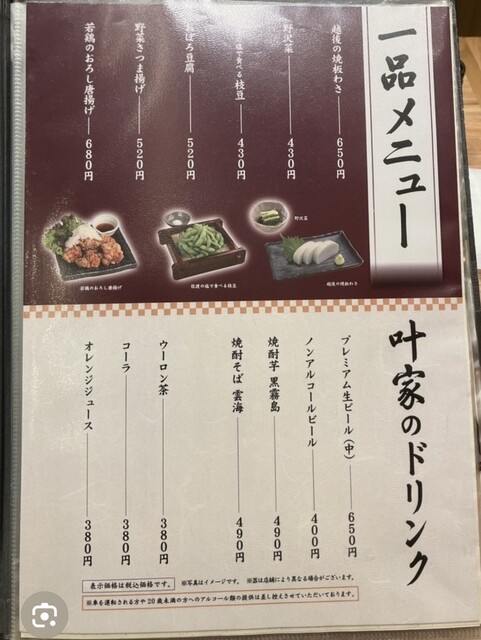 一品メニュー
越後の焼板わさ 650円
野沢菜 430円
塩で食べる枝豆 430円
ぼろ豆腐 520円
野菜さつま揚げ 520円
若鶏のおろし唐揚げ 680円
野沢菜
越後の焼板わさ
佐渡の塩で食べる枝豆
若鶏のおろし唐揚げ
叶家のドリンク
プレミアム生ビール(中) 650円
ノンアルコールビール 400円
焼酎芋 黒霧島 490円
焼酎そば 雲海 490円
ウーロン茶 380円
コーラ 380円
オレンジジュース 380円
表示価格は税込価格です。 ※写真はイメージです。 ※器は店舗により異なる場合がございます。
※車を運転される方や20歳未満の方へのアルコール類の提供は差し控えさせていただいております。